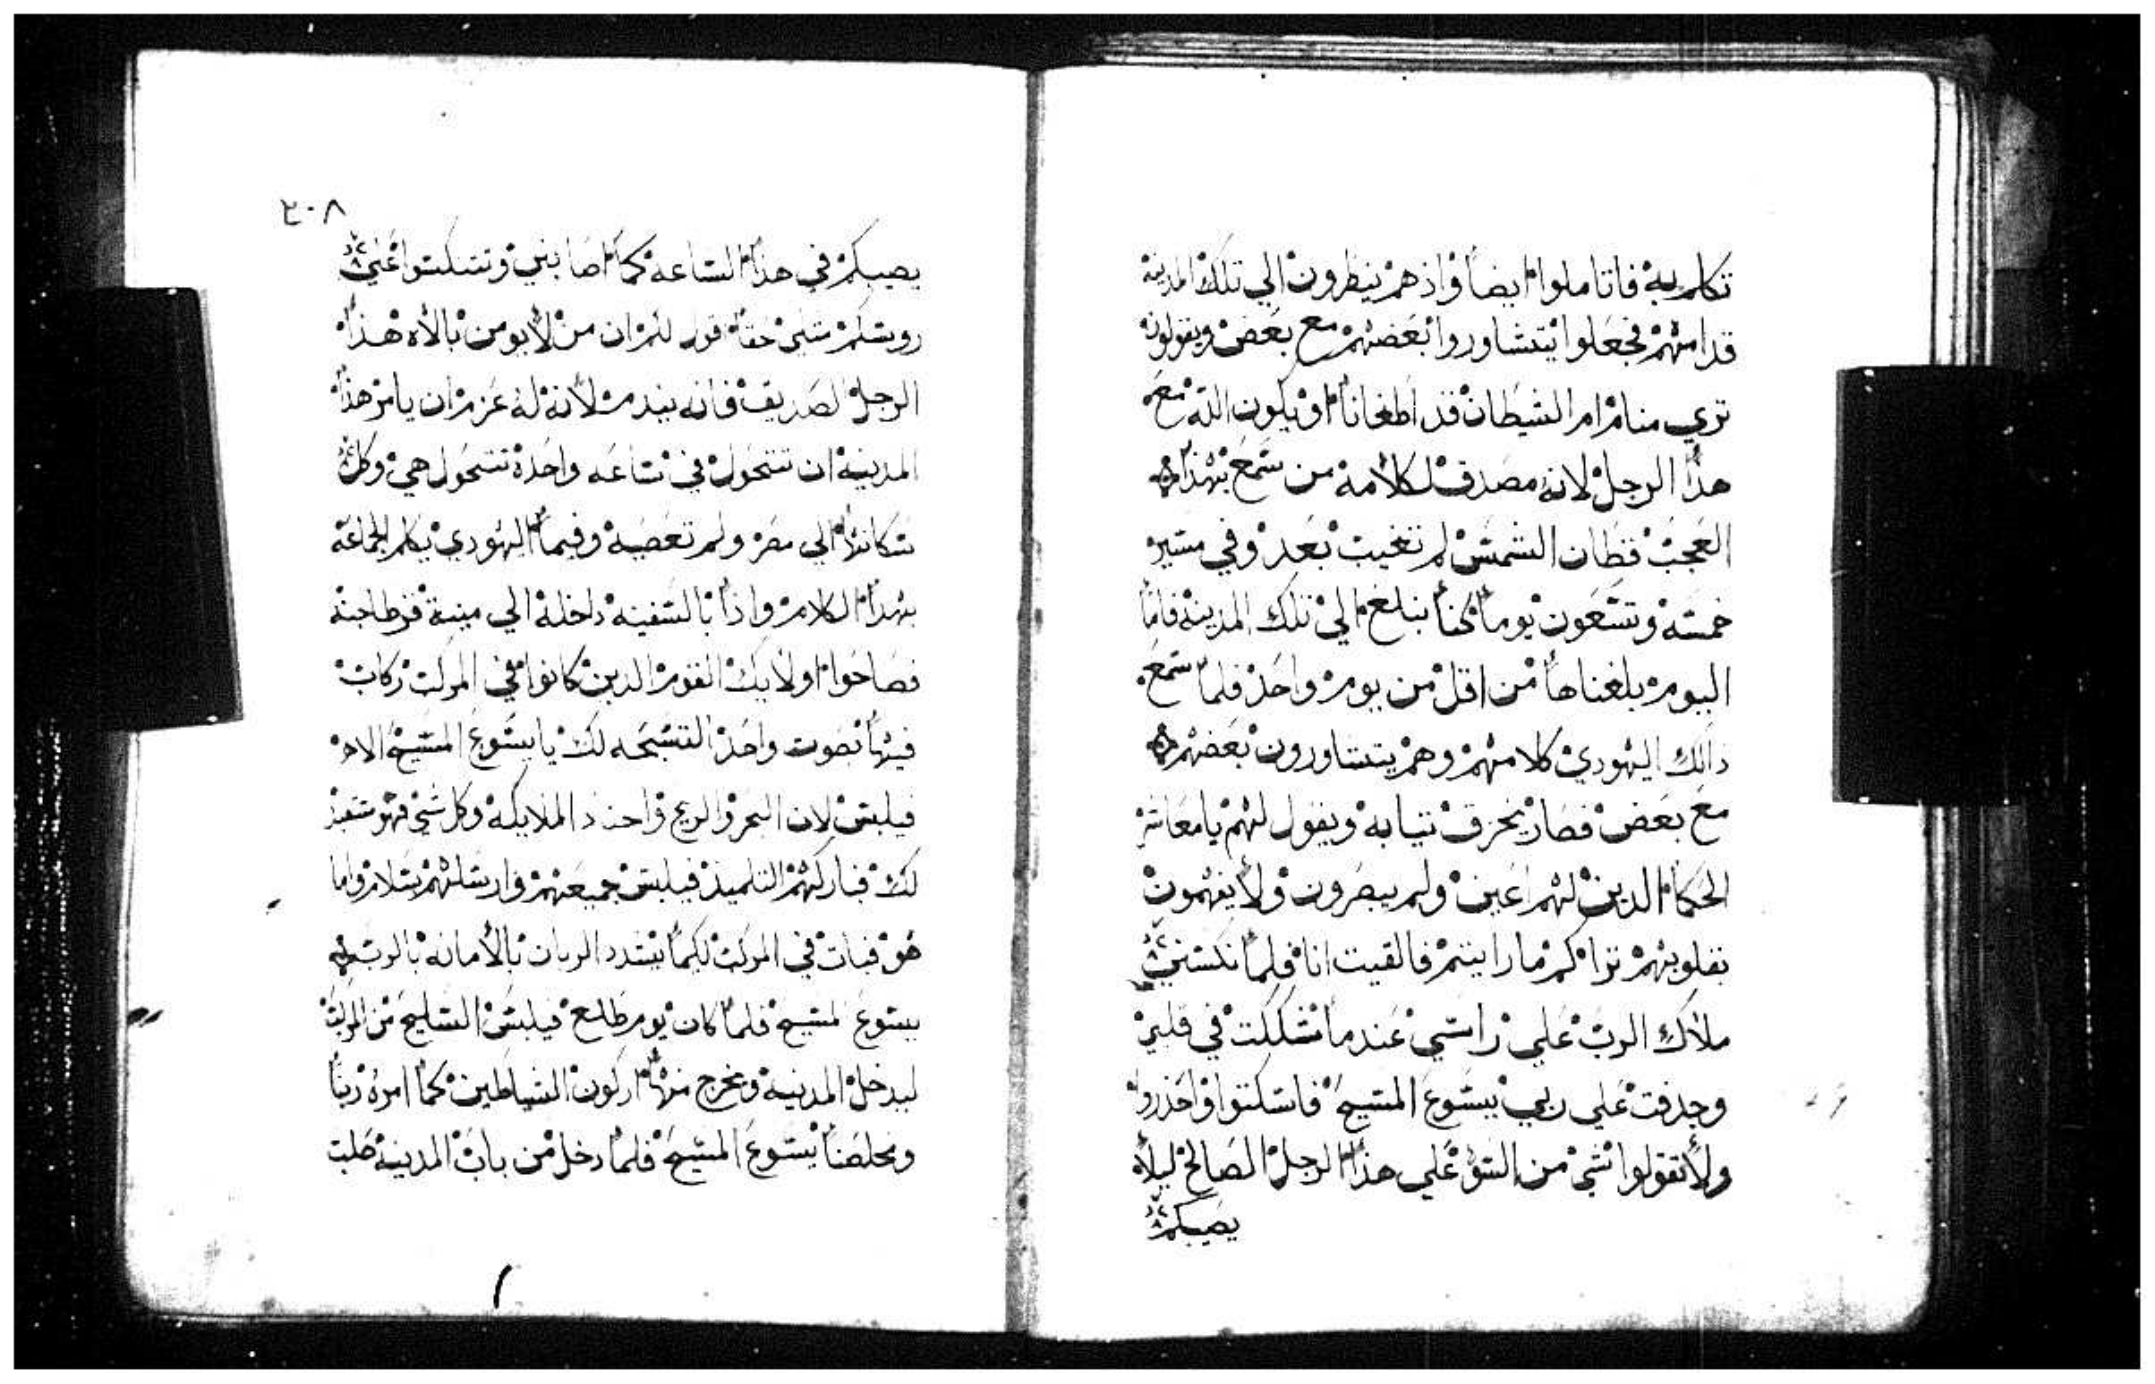 تكلم به فاتاملوا ايضا واذهم ينظرون الي تلك المدينه
قدامهم فجعلوا يتشاوروا بعضهم مع بعض ويقولون
تري منام ام الشيطان قد اطغانا او يكون الله مع
هذا الرجل لانه مصدق لكلامه من سمع بهذا
العجب قط ان الشمس لم تغيب بعد وفي مسير
خمسه وتسعون يوما كنا نبلغ الي تلك المدينه فاما
اليوم بلغناها من اقل من يوم واحد فلما سمع
دالك اليهودي كلامهم وهم يتشاورون بعضهم
مع بعض فصار يخرق تيابه ويقول لهم يا معاشر
الحكما الدين لهم اعين ولم يبصرون ولا يفهمون
بقلوبهم تراكم ما رايتم فالقيت انا فلما نكسني
ملاك الرب علي راسي عندما تشككت في قلبي
وجدفت علي ربي يسوع المسيح فاسكتوا واحذروا
ولا تقولوا شي من السو علي هذا الرجل الصالح ليلا
يصيبكم
٢٠٨
يصيبكم في هذا الساعه كما اصابني وتنكسوا علي
روسكم متلي حقا اقول لكم ان من لا يومن بالاه هذا
الرجل الصديق فانه يندم لانه له عزم ان يامر هذا
المدينه ان تتحول في ساعه واحده تتحول هي وكل
سكانها الي مصر ولم تعصيه وفيما اليهودي يكلم الجماعه
بهذا الكلام واذا بالسفينه داخله الي مينة قرطاجنه
فصاحوا اولايك القوم الدين كانوا في المركب ركاب
فيها بصوت واحد التسبحه لك يا يسوع المسيح الاه
فيلبس لان البحر والريح واجناد الملايكه وكل شي فهو متعبد
لك فباركهم التلميذ فيلبس جميعهم وارسلهم بسلام واما
هو فبات في المركب لكيما يشدد الربان بالأمانه بالرب
يسوع المسيح فلما كان يوم طلع فيلبس السليح من المركب
ليدخل المدينه ويخرج منها اركون الشياطين كما امره ربنا
ومخلصنا يسوع المسيح فلما دخل من باب المدينه طلب